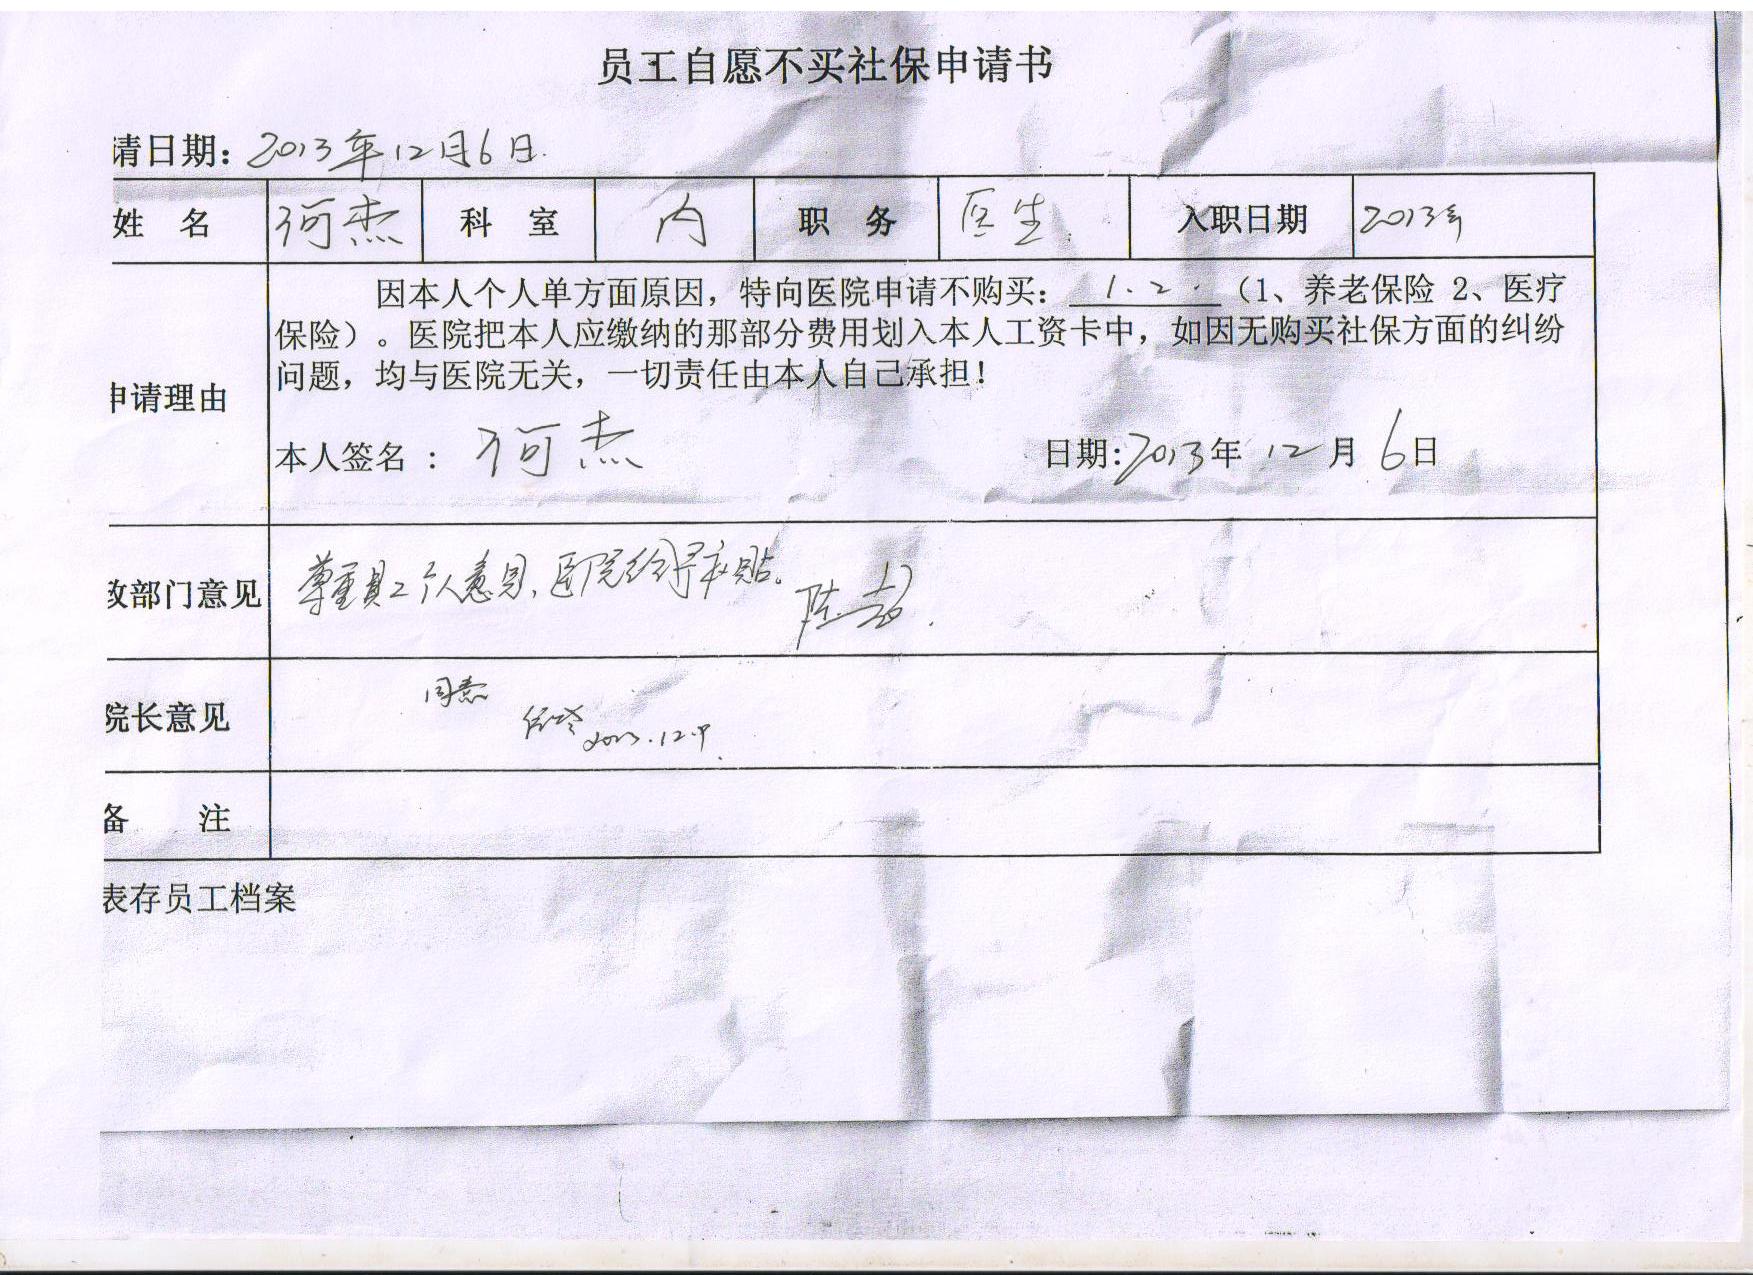 员工自愿不买社保申请书
请日期：2013年12月6日.
姓 名 何杰 科 室 内 职 务 医生. 入职日期 2013年
因本人个人单方面原因，特向医院申请不购买：1.2.（1、养老保险 2、医疗
保险）。医院把本人应缴纳的那部分费用划入本人工资卡中，如因无购买社保方面的纠纷
问题，均与医院无关，一切责任由本人自己承担！
申请理由
本人签名 ： 何杰 日期:2013年 12月 6日
政部门意见 尊重员工个人意见，医院给予补贴。
院长意见 同意
备 注
表存员工档案